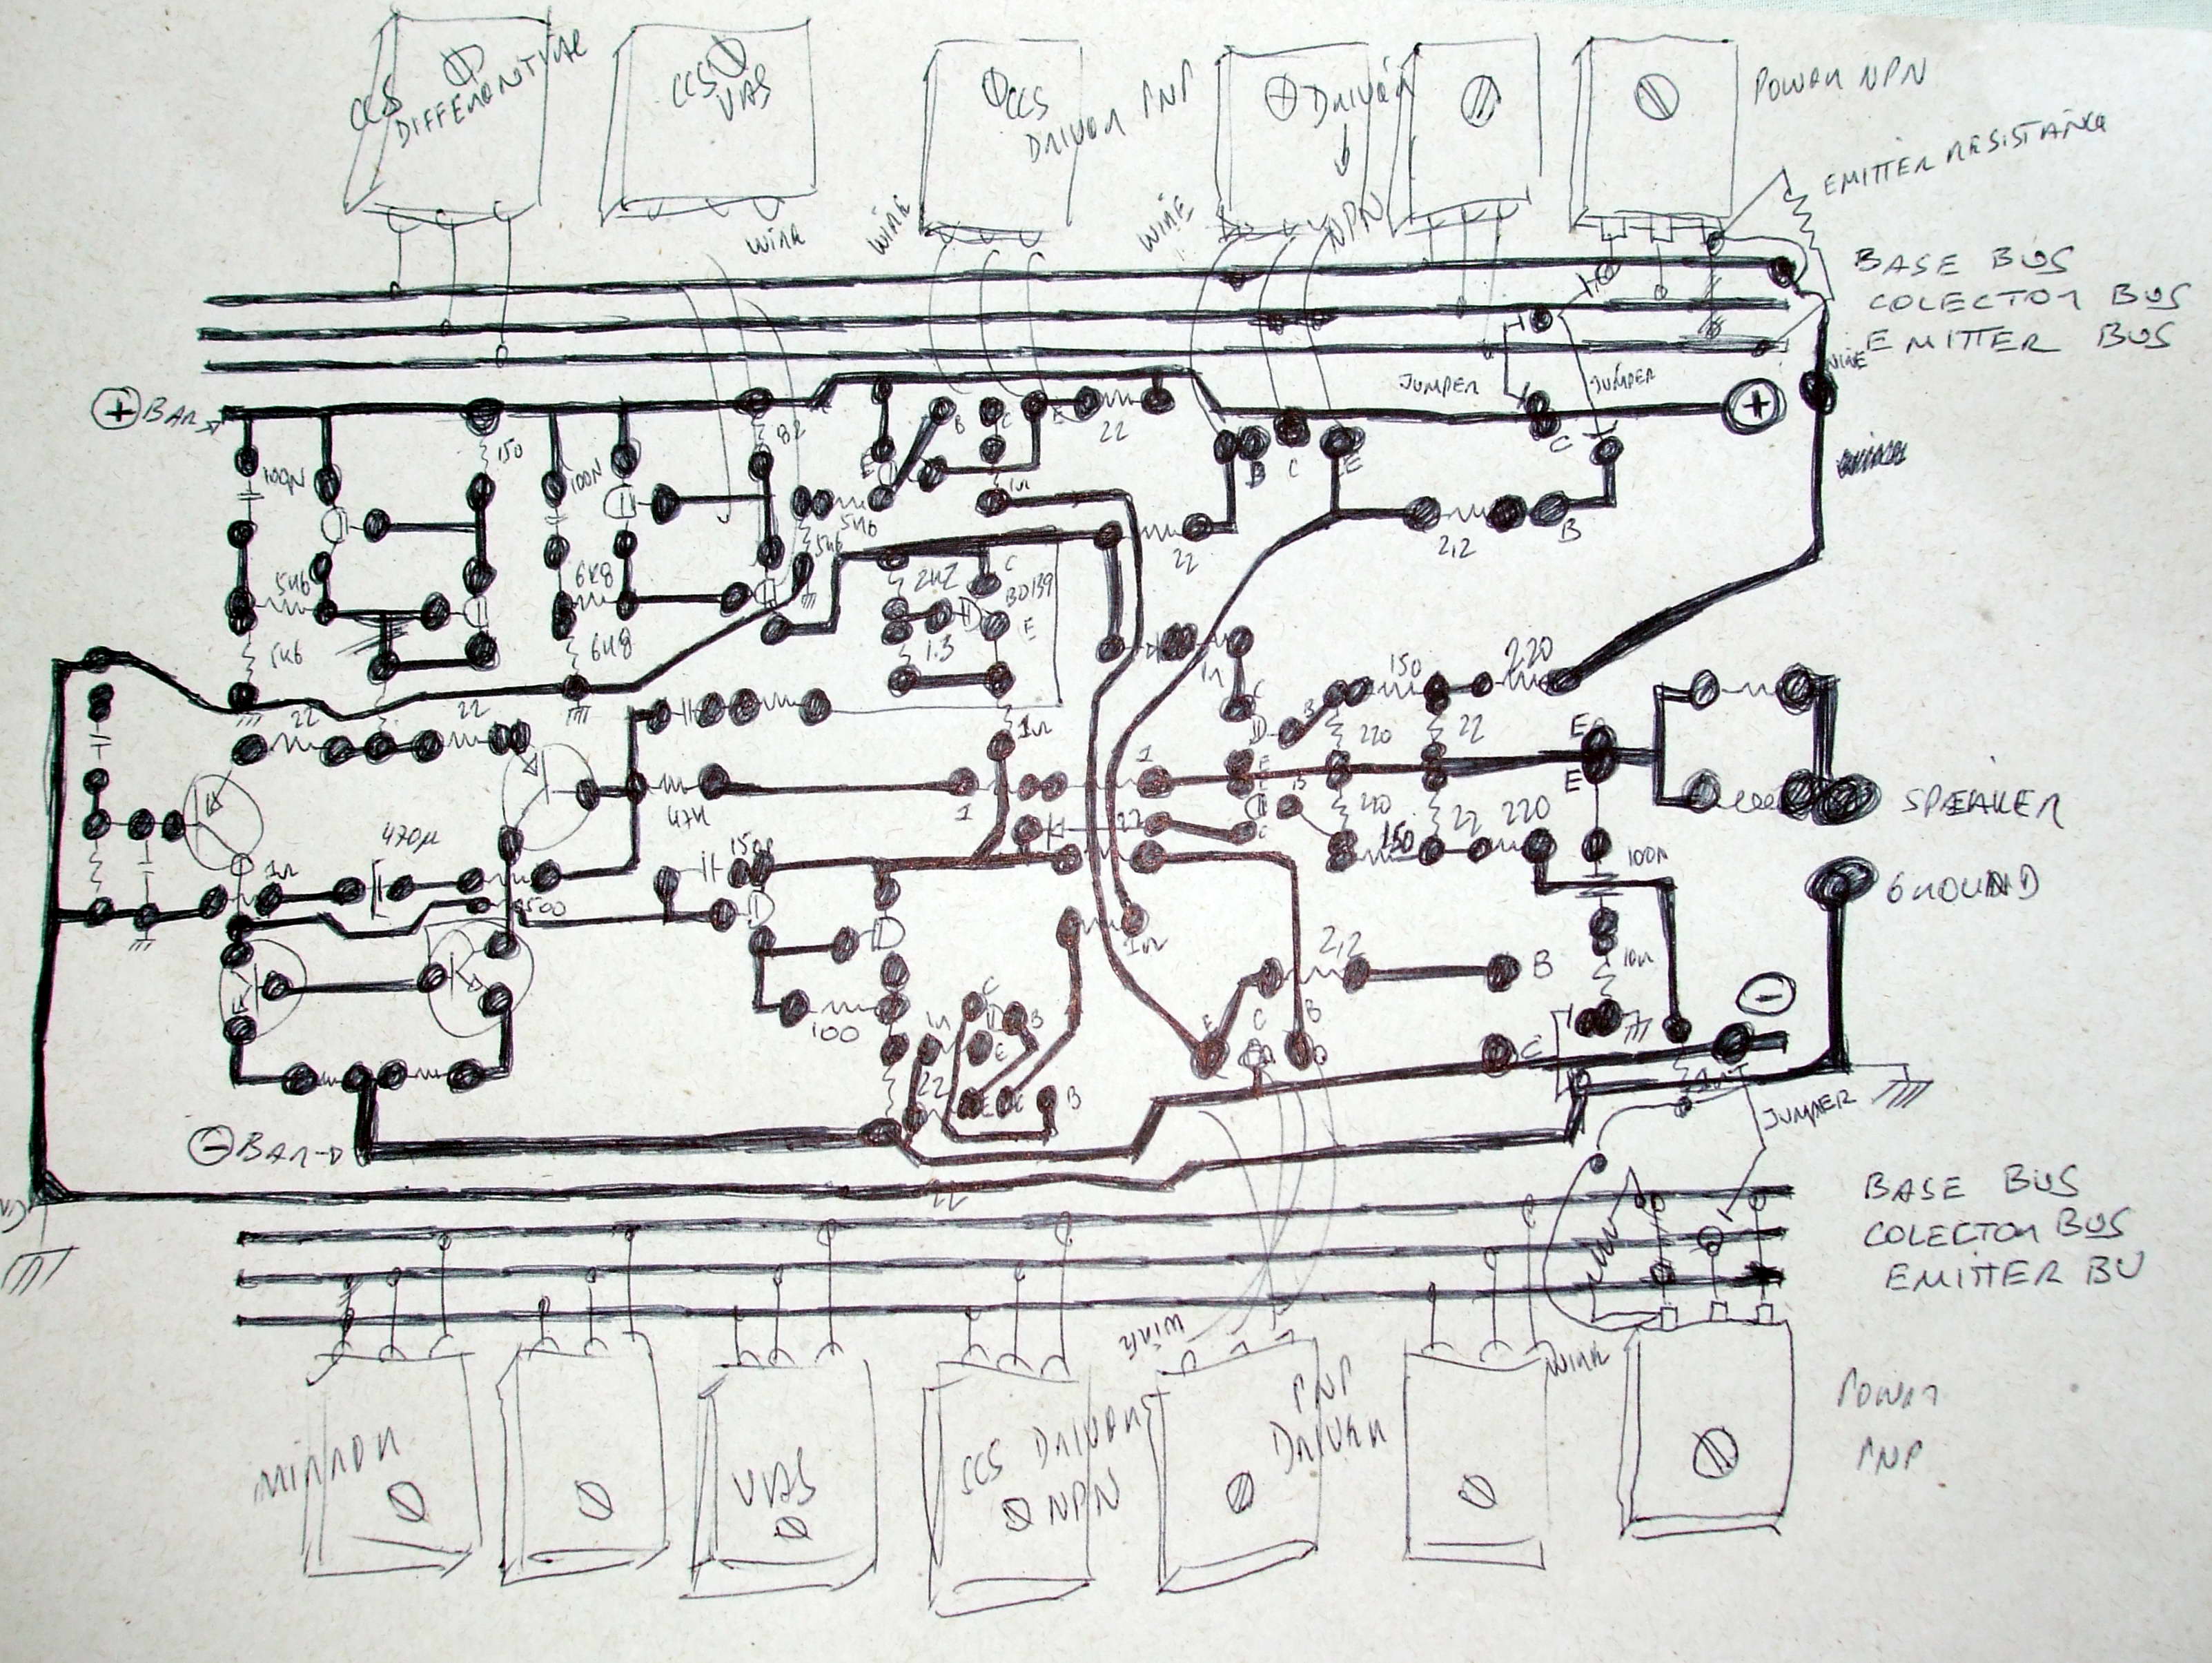 CCS
DIFFERENTIAL
CCS
VAS
CCS
DRIVER PNP
DRIVER
NPN
POWER NPN
EMITTER RESISTANCE
WIRE
WIRE
WIRE
BASE BUS
COLECTOR BUS
EMITTER BUS
WIRE
JUMPER
JUMPER
+ BAR
+
150
82
B
C
E
22
E
B
C
E
C
100N
100N
5K6
5K6
2,2
B
5K6
6K8
22
2K2
C
BD139
E
5K6
6K8
1.3
1n
150
220
22
22
C
B
220
22
1n
E
E
47K
1
1
E
E
B
220
SPEAKER
470µ
150p
22
C
150
22
220
100n
1n
1500
GROUND
1n
2,2
B
10n
100
C
B
E
1n
E
C
B
C
−
22
E
C
B
JUMPER
− BAR
22
BASE BUS
COLECTOR BUS
EMITTER BU
WIRE
WIRE
MIRROR
VAS
CCS DRIVER
NPN
PNP
DRIVER
POWER
PNP